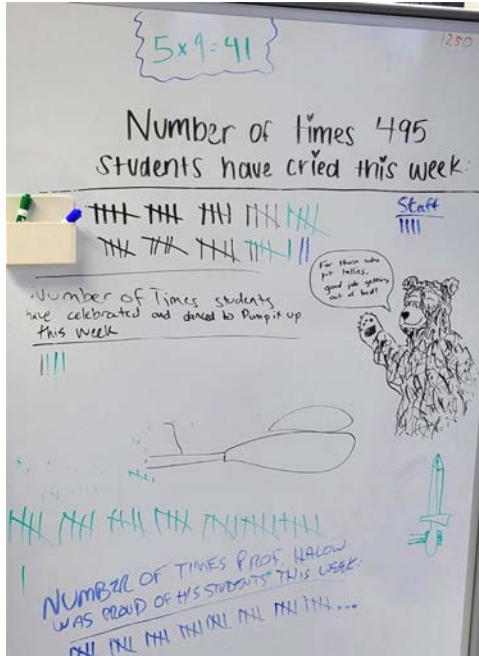 5x9=41
1250
Number of times 495
students have cried this week:
Staff
For those who
put tallies,
good job getting
out of bed!
Number of Times students
have celebrated and danced to Pump it up
this week
NUMBER OF TIMES PROF. HALOW
WAS PROUD OF HIS STUDENTS THIS WEEK:
...